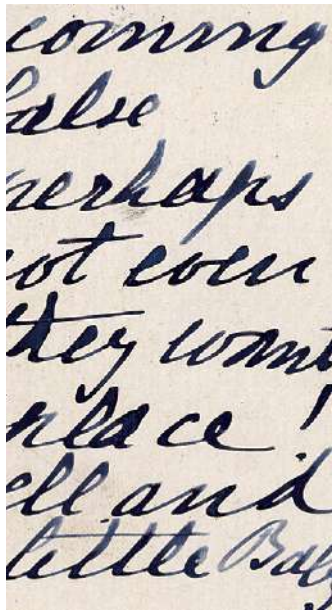 coming
false
perhaps
not even
they want
place!
ell and
little Bab